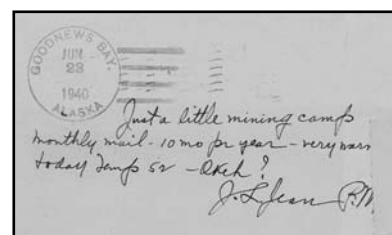 GOODNEWS BAY,
JUN
23
1940
ALASKA
Just a little mining camp
monthly mail - 10 mo pr year - very warm
today Temp 52 - Okeh?
P.M